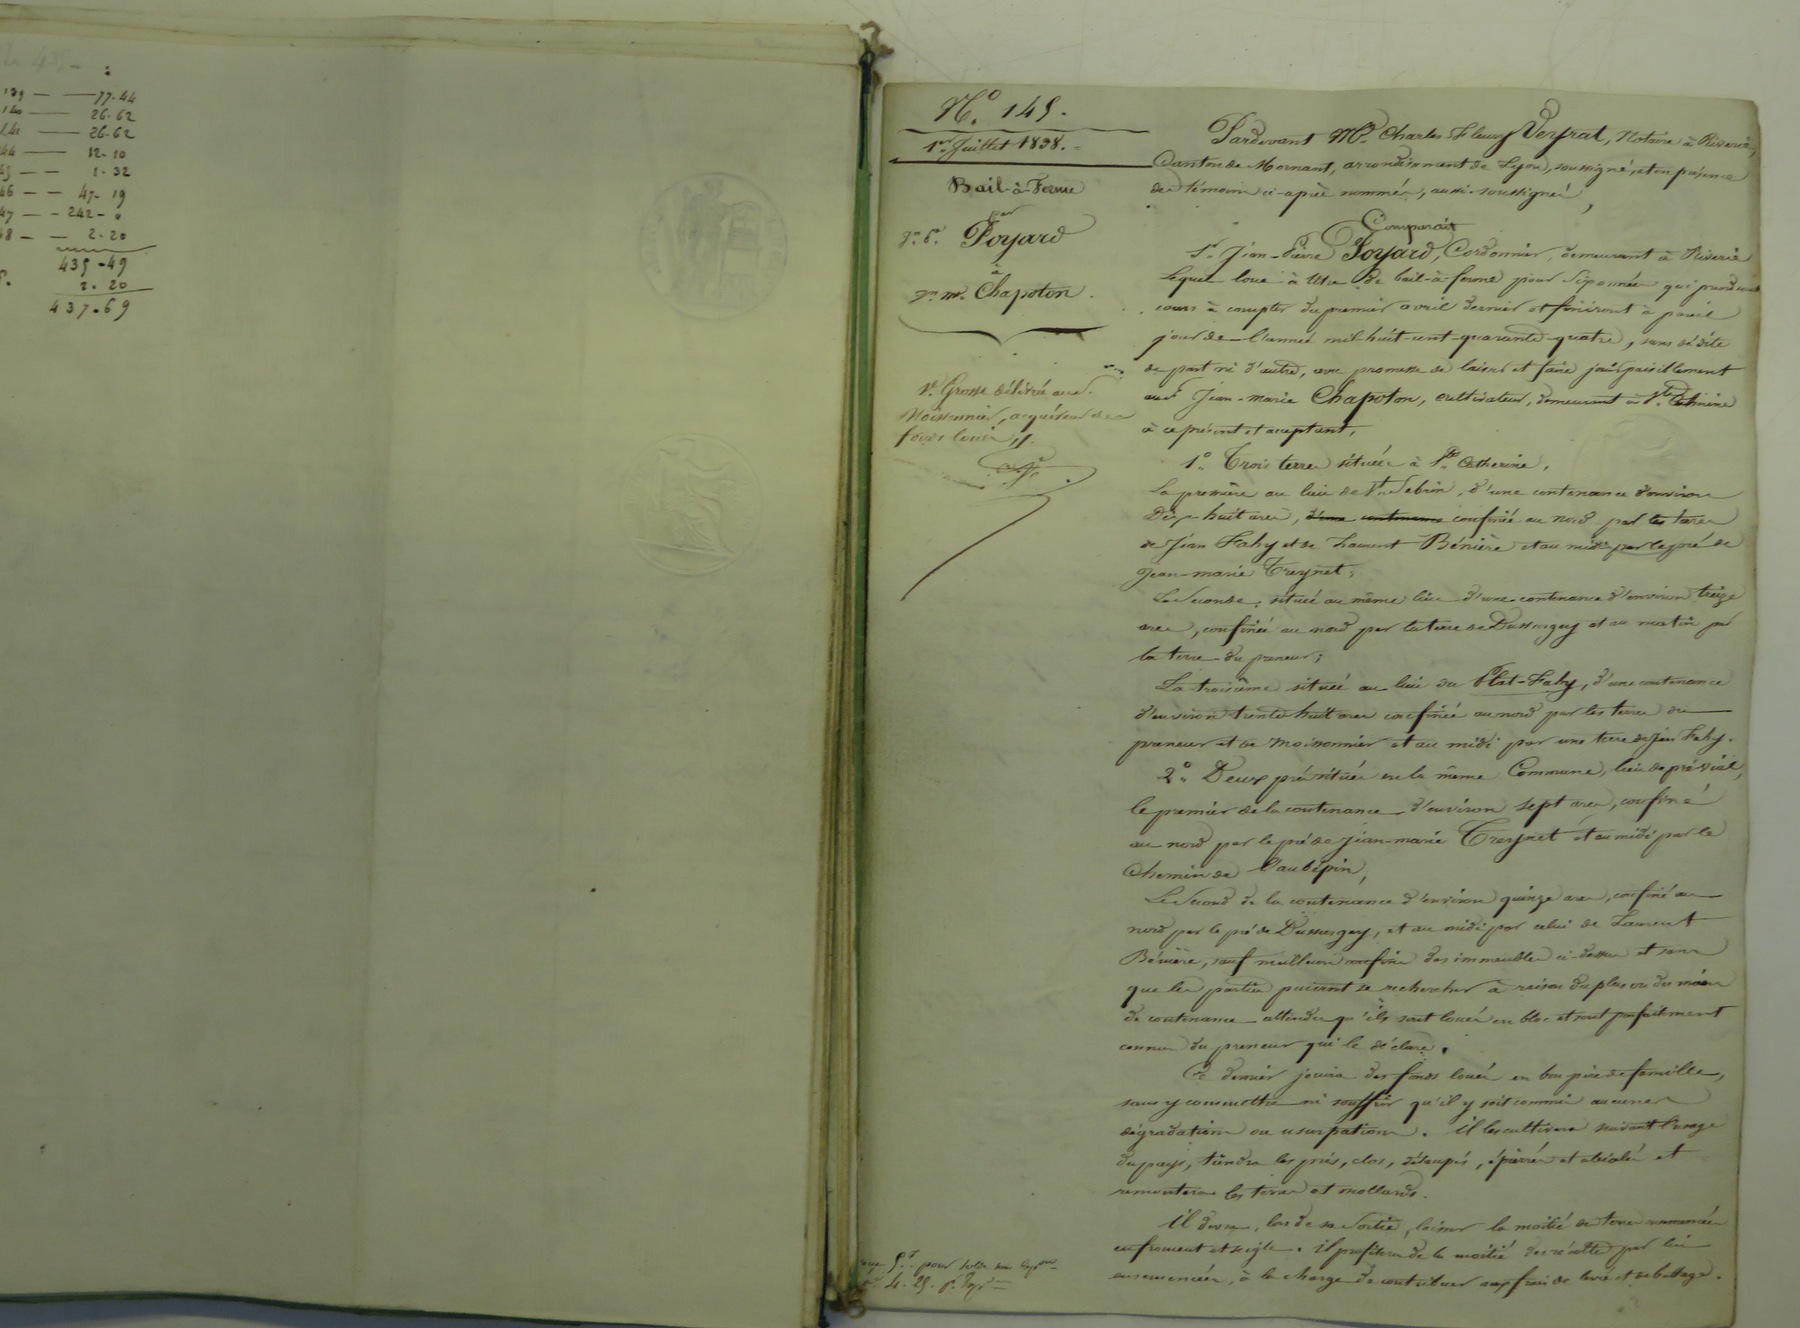 139 — — 77.44
140 — 26.62
141 — 26.62
144 — 12.10
145 — — 1.32
146 — — 47.19
147 — — 242 — "
148 — — 2.20
435.49
2.20
437.69
N.º 145.
1er Juillet 1838.
Bail-à-Ferme
par
Jn. Pre. Poyard
à
Jn. Mie. Chapoton.
1re Grosse délivrée aud.
Moissonnier, acquéreur des
fonds loués //.
Pardevant Me. Charles-Fleury Veyrat, Notaire à Riverie,
Canton de Mornant, arrondissement de Lyon, soussigné, et en présence
des témoins ci-après nommés, aussi soussignés,
Comparait
Sr. Jean-Pierre Poyard, Cordonnier, demeurant à Riverie
Lequel loue à titre de bail-à-ferme pour six années qui prendront
cours à compter du premier avril dernier et finiront à pareil
jour de l'année mil-huit-cent-quarante-quatre, sans dédite
de part ni d'autre, avec promesse de laisser et faire jouir paisiblement
aud. Jean-marie Chapoton, cultivateur, demeurant à Ste. Catherine
à ce présent et acceptant,
1º. Trois terres situées à Ste. Catherine,
La première au lieu de d'une contenance d'environ
Dix-huit ares, d'une contenance confinée au nord par les terres
de Jean Fahy et de Laurent Bénière et au midi par le pré de
Jean-marie Treynet;
La Seconde, située au même lieu d'une contenance d'environ treize
ares, confinée au nord par la terre de Dussurgey et au matin par
la terre du preneur;
La troisième située au lieu du Plat-Fahy, d'une contenance
d'environ trente huit ares confinée au nord par les terres du
preneur et de Moissonnier et au midi par une terre de Jean Fahy.
2º. Deux prés situés en la même Commune, lieu de pré-vial,
le premier de la contenance d'environ sept ares, confiné
au nord par le pré de Jean-marie Treynet et au midi par le
Chemin de l'aubépin,
Le Second de la contenance d'environ quinze ares, confiné au
nord par le pré de Dussurgey, et au midi par celui de Laurent
Bénière, sauf meilleurs confins des immeubles ci-dessus et sans
que les parties puissent se rechercher à raison du plus ou du moins
de contenance attendu qu'ils sont loués en bloc et sont parfaitement
connus du preneur qui le déclare.
Ce dernier jouira des fonds loués en bon père de famille,
sans y commettre ni souffrir qu'il y soit commis aucunes
dégradations ou usurpations. il les cultivera suivant l'usage
du pays, tiendra les prés, clos, détaupés, épierrés et abéalés et
remontera les terres et mollards.
Il devra, lors de sa Sortie, laisser la moitié des terres ensemencées
en froment et seigle. il profitera de la moitié des récoltes par lui
ensemencées, à la charge de contribuer aux frais de levée et de battage.